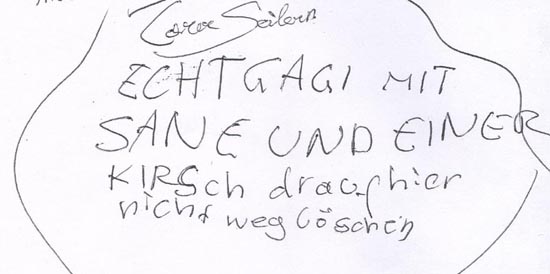 Seilern
ECHTGAGI MIT
SANE UND EINER
KIRSch drauf hier
nicht weg löschen